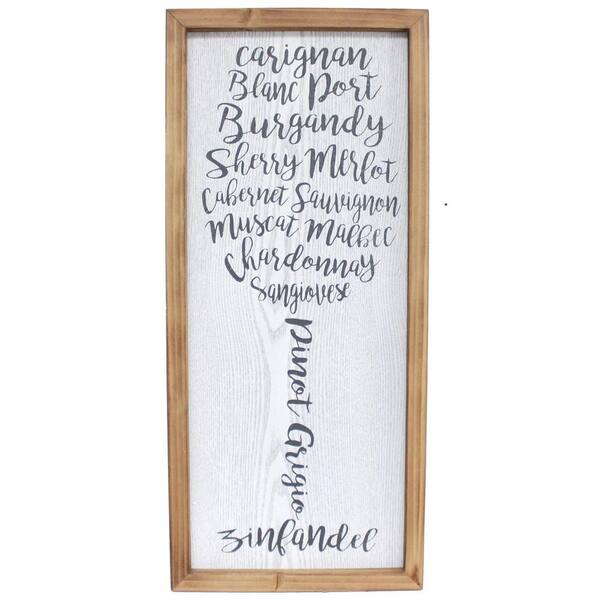 carignan
Blanc Port
Burgandy
Sherry Merlot
Cabernet Sauvignon
Muscat Malbec
Chardonnay
Sangiovese
Pinot Grigio
Zinfandel